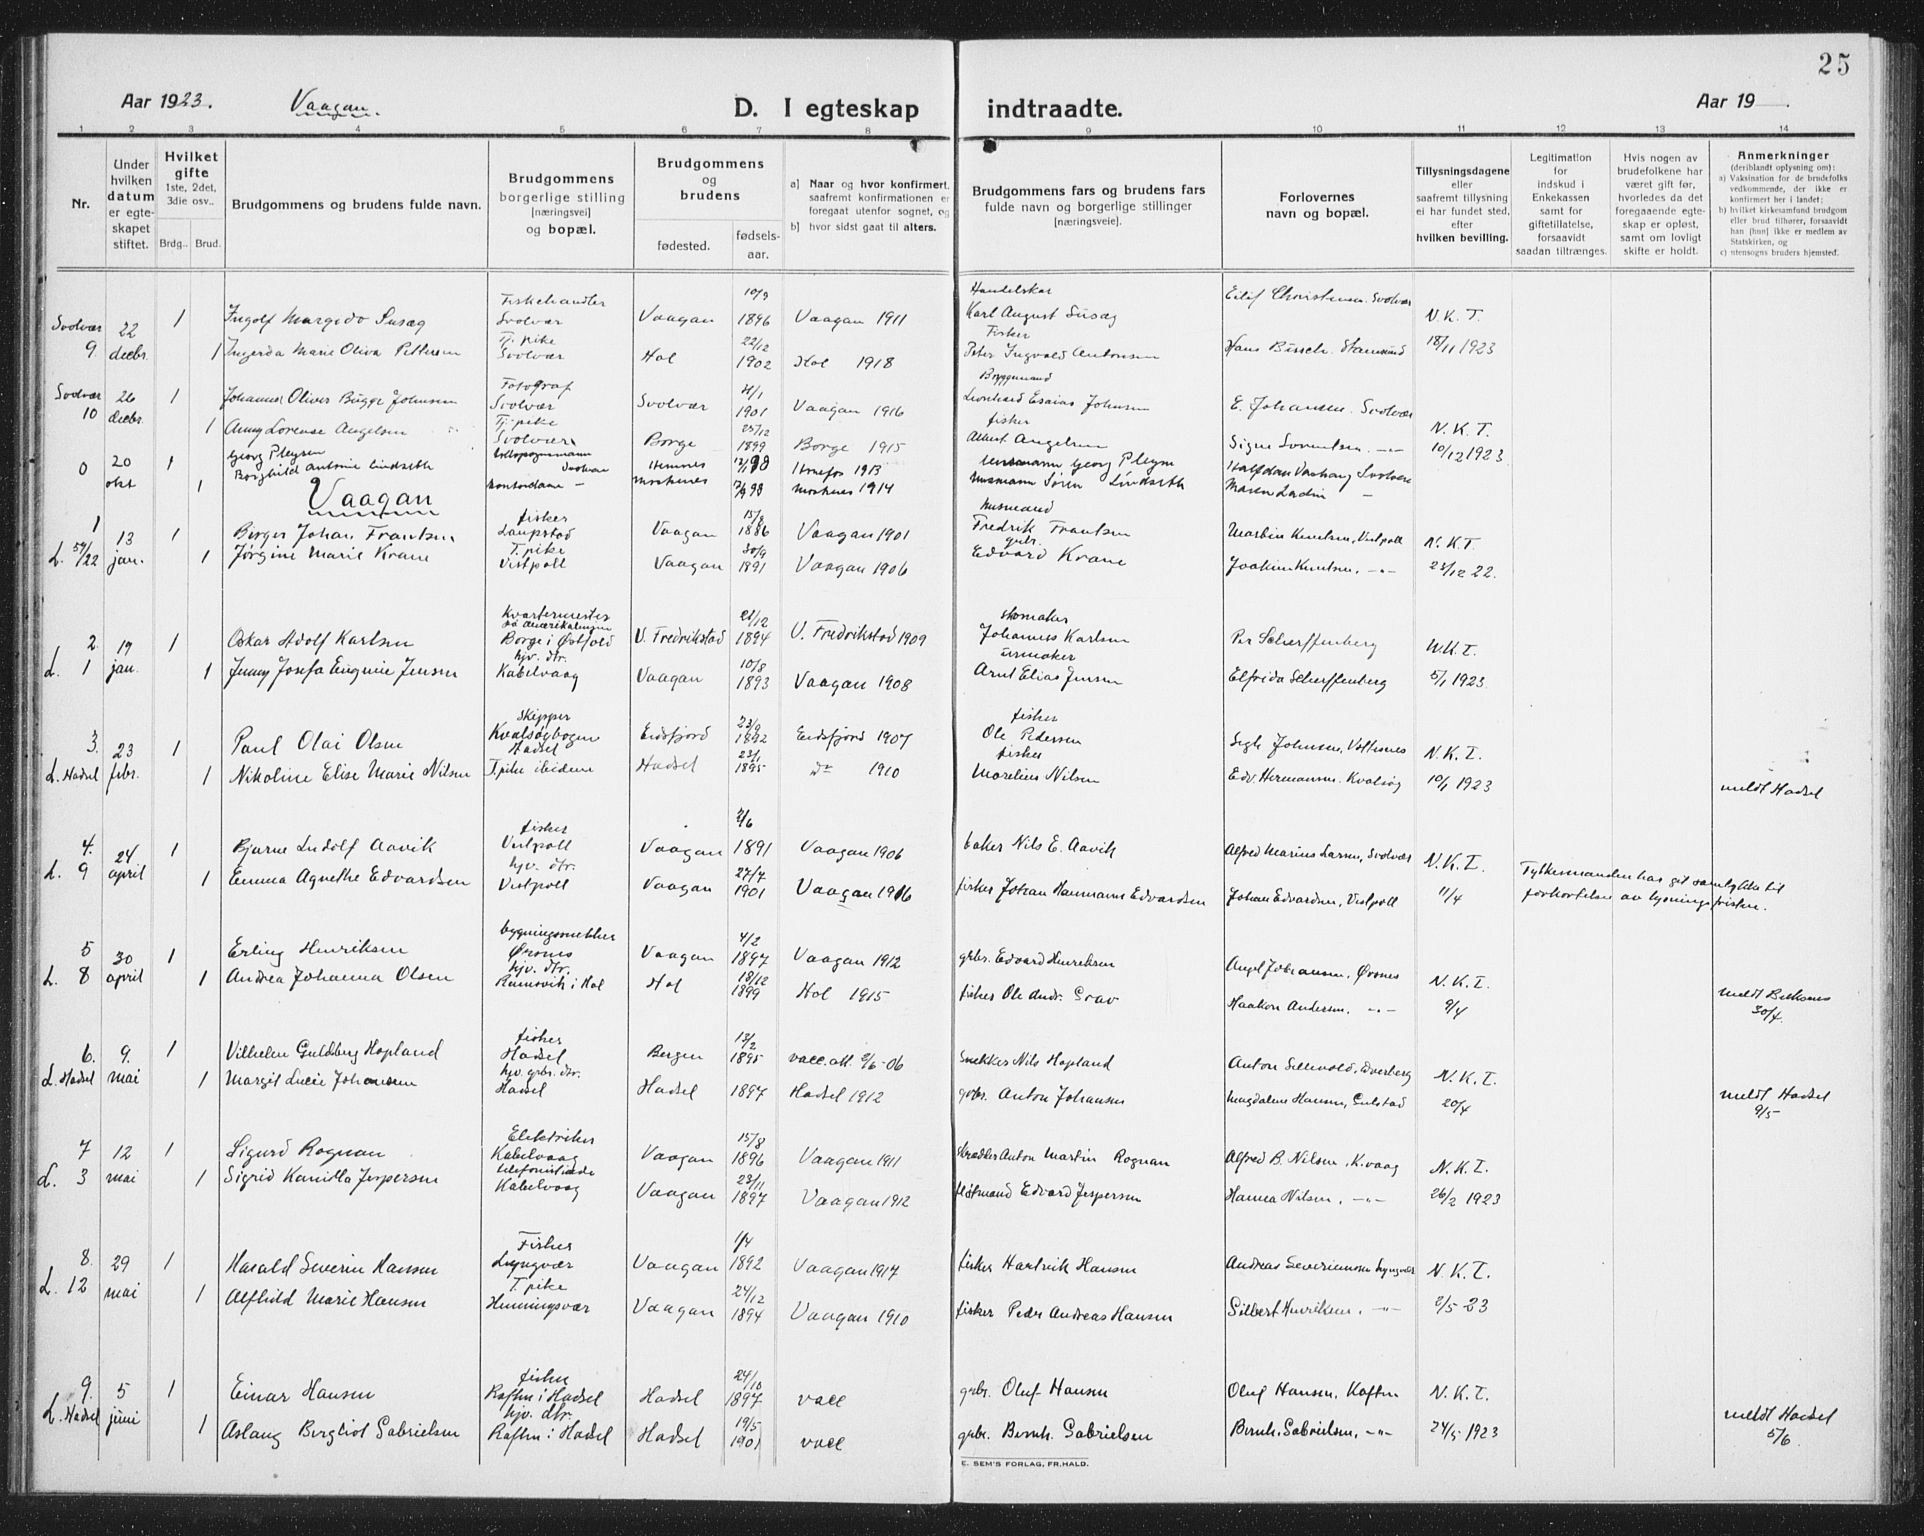 25
Aar 1923. Vaagan. D. I egteskap indtraadte. Aar 19
1 2 3 4 5 6 7 8 9 10 11 12 13 14
Nr.
Under hvilken datum er egteskapet stiftet.
Hvilket gifte 1ste, 2det, 3die osv.. Brdg.. Brud.
Brudgommens og brudens fulde navn.
Brudgommens borgerlige stilling [næringsvei] og bopæl.
Brudgommens og brudens fødested. fødsels-aar.
a) Naar og hvor konfirmert. saafremt konfirmationen er foregaat utenfor sognet, og
b) hvor sidst gaat til alters.
Brudgommens fars og brudens fars fulde navn og borgerlige stillinger [næringsveie].
Forlovernes navn og bopæl.
Tillysningsdagene eller saafremt tillysning ei har fundet sted, efter hvilken bevilling.
Legitimation for indskud i Enkekassen samt for giftetillatelse, forsaavidt saadan tiltrænges.
Hvis nogen av brudefolkene har været gift før, hvorledes da det foregaaende egteskap er opløst, samt om lovligt skifte er holdt.
Anmerkninger (deriblandt oplysning om):
a) Vaksination for de brudefolks vedkommende, der ikke er konfirmert her i landet;
b) hvilket kirkesamfund brudgom eller brud tilhører, forsaavidt han [hun] ikke er medlem av Statskirken, og
c) utensogns bruders hjemsted.
Svolvær 9. 22 decbr. 1 Ingolf Margido Susæg Fiskehandler Svolvær Vaagan 10/9 1896 Vaagan 1911 Handelskar Karl August Susæg Eilif Christensen. Svolvær N.K.T.
1 Ingerda Marie Oliva Pettersen Tj. pike Svolvær Hol 22/12 1902 Hol 1918 Fisker Peter Ingvald Antonsen Hans Busch. Stamsund 18/11 1923
Svolvær 10 26 decbr. 1 Johannes Oliver Bugge Johnsen Fotograf Svolvær Svolvær 1901 Vaagan 1916 Bryggemand Leonhard Esaias Johnsen E. Johansen. Svolvær N.K.T.
1 Anny Lorense Angelsen Tj. pike Svolvær Borge 1899 Borge 1915 fisker Albert Angelsen Signe Lorentsen. -"- 10/12 1923
0 20 okt 1 Georg Pleysen Svolvær Hemnes 98 1913 Georg Pleym Svolvær
1 Borghild Antonie Lindseth kontordame - Moskenes 98 Moskenes 1914 Husmann Søren Lindseth Maren -
Vaagan
1 L. 59/22 13 jan. 1 Birger Johan Frantsen fisker Laupstad Vaagan 15/8 1886 Vaagan 1901 husmand Fredrik Frantsen Martin Knutsen, Vestpoll N.K.T.
1 Jørgine Marie Krane T. pike Vestpoll Vaagan 30/9 1891 Vaagan 1906 gbr. Edvard Krane Joakim Knutsen, -"- 23/12 22.
2. L. 1 19 jan. 1 Oskar Adolf Karlsen Kvartermester Borge i Østfold V. Fredrikstad 21/12 1894 V. Fredrikstad 1909 skomaker Johannes Karlsen Per Scherffenberg N.K.T.
1 Jenny Josefa Eugenie Jensen hjv. dtr. Kabelvaag Vaagan 10/8 1893 Vaagan 1908 urmaker Arnt Elias Jensen Elfrida Scherffenberg 5/1 1923.
3. L. Hadsel 23 febr. 1 Paul Olai Olsen skipper Hadsel Eidsfjord 1892 Eidsfjord 1907 fisker Ole Pedersen Johnsen, N.K.T.
1 Nikoline Elise Marie Nilsen T. pike ibidem Hadsel 23/1 1895 do 1910 fisker Marelius Nilsen Edv. Hermansen. Kvalsøg 10/1 1923 meldt Hadsel
4. L. 9 24. april 1 Bjarne Ludolf Aavik fisker Vestpoll Vaagan 1891 Vaagan 1906 baker Nils E. Aavik Alfred Marius Larsen, Svolvær N.K.T.
1 Emma Agnethe Edvardsen hjv. dtr. Vestpoll Vaagan 27/7 1901 Vaagan 1916 fisker Johan Hanmann Edvardsen Johan Edvardsen, Vestpoll 11/4 Fylkesmanden har git samtykke til forkortelse av lysningsfristen.
5 L. 8 30 april 1 Erling Henriksen bygningssnekker Ørsnes Vaagan 4/2 1897 Vaagan 1912 gbr. Edvard Henriksen Angel Johansen, Ørsnes N.K.T.
1 Andrea Johanna Olsen hjv. dtr. Ramsvik i Hol Hol 18/12 1899 Hol 1915 fisker Ole Andr. Grav Haakon Andersen. -"- 9/4 meldt Buksnes 30/4.
6. L. Hadsel 9. mai 1 Vilhelm Guldberg Hopland fisker Hadsel Bergen 13/2 1895 vacc. att. 2/6-06 Snekker Nils Hopland Anton N.K.T.
1 Margit Lucie Johansen hjv. gbr. dtr. Hadsel Hadsel 1897 Hadsel 1912 gbr. Anton Johansen Magdalene Hansen, Gulstad 20/4 meldt Hadsel 9/5
7 L. 3 12 mai 1 Sigurd Rognan Elektriker Kabelvaag Vaagan 15/8 1896 Vaagan 1911 Skrædder Anton Martin Rognan Alfred B. Nilsen, K.vaag N.K.T.
1 Sigrid Kamilla Jespersen telefonistinde Kabelvaag Vaagan 23/11 1897 Vaagan 1912 Edvard Jespersen Hanna Nilsen, -"- 26/2 1923
8. L. 12 29 mai 1 Harald Severin Hansen Fisker Lyngvær Vaagan 1/4 1892 Vaagan 1917 fisker Hartvik Hansen Andreas Severinsen Lyngvær N.K.T.
1 Alfhild Marie Hansen T. pike Henningsvær Vaagan 24/12 1894 Vaagan 1910 fisker Peder Andreas Hansen Gilbert Henriksen, -"- 2/5 23
9. L. Hadsel 5 juni 1 Einar Hansen fisker Raften i Hadsel Hadsel 24/10 1897 vacc gbr. Oluf Hansen Oluf Hansen, Raften N.K.T.
1 Aslaug Bergliot Gabrielsen hjv. dtr. Raften i Hadsel Hadsel 19/5 1901 vacc gbr. Bernh. Gabrielsen Bernh. Gabrielsen, -"- 24/5 1923 meldt Hadsel 5/6.
E. SEM'S FORLAG, FR.HALD.